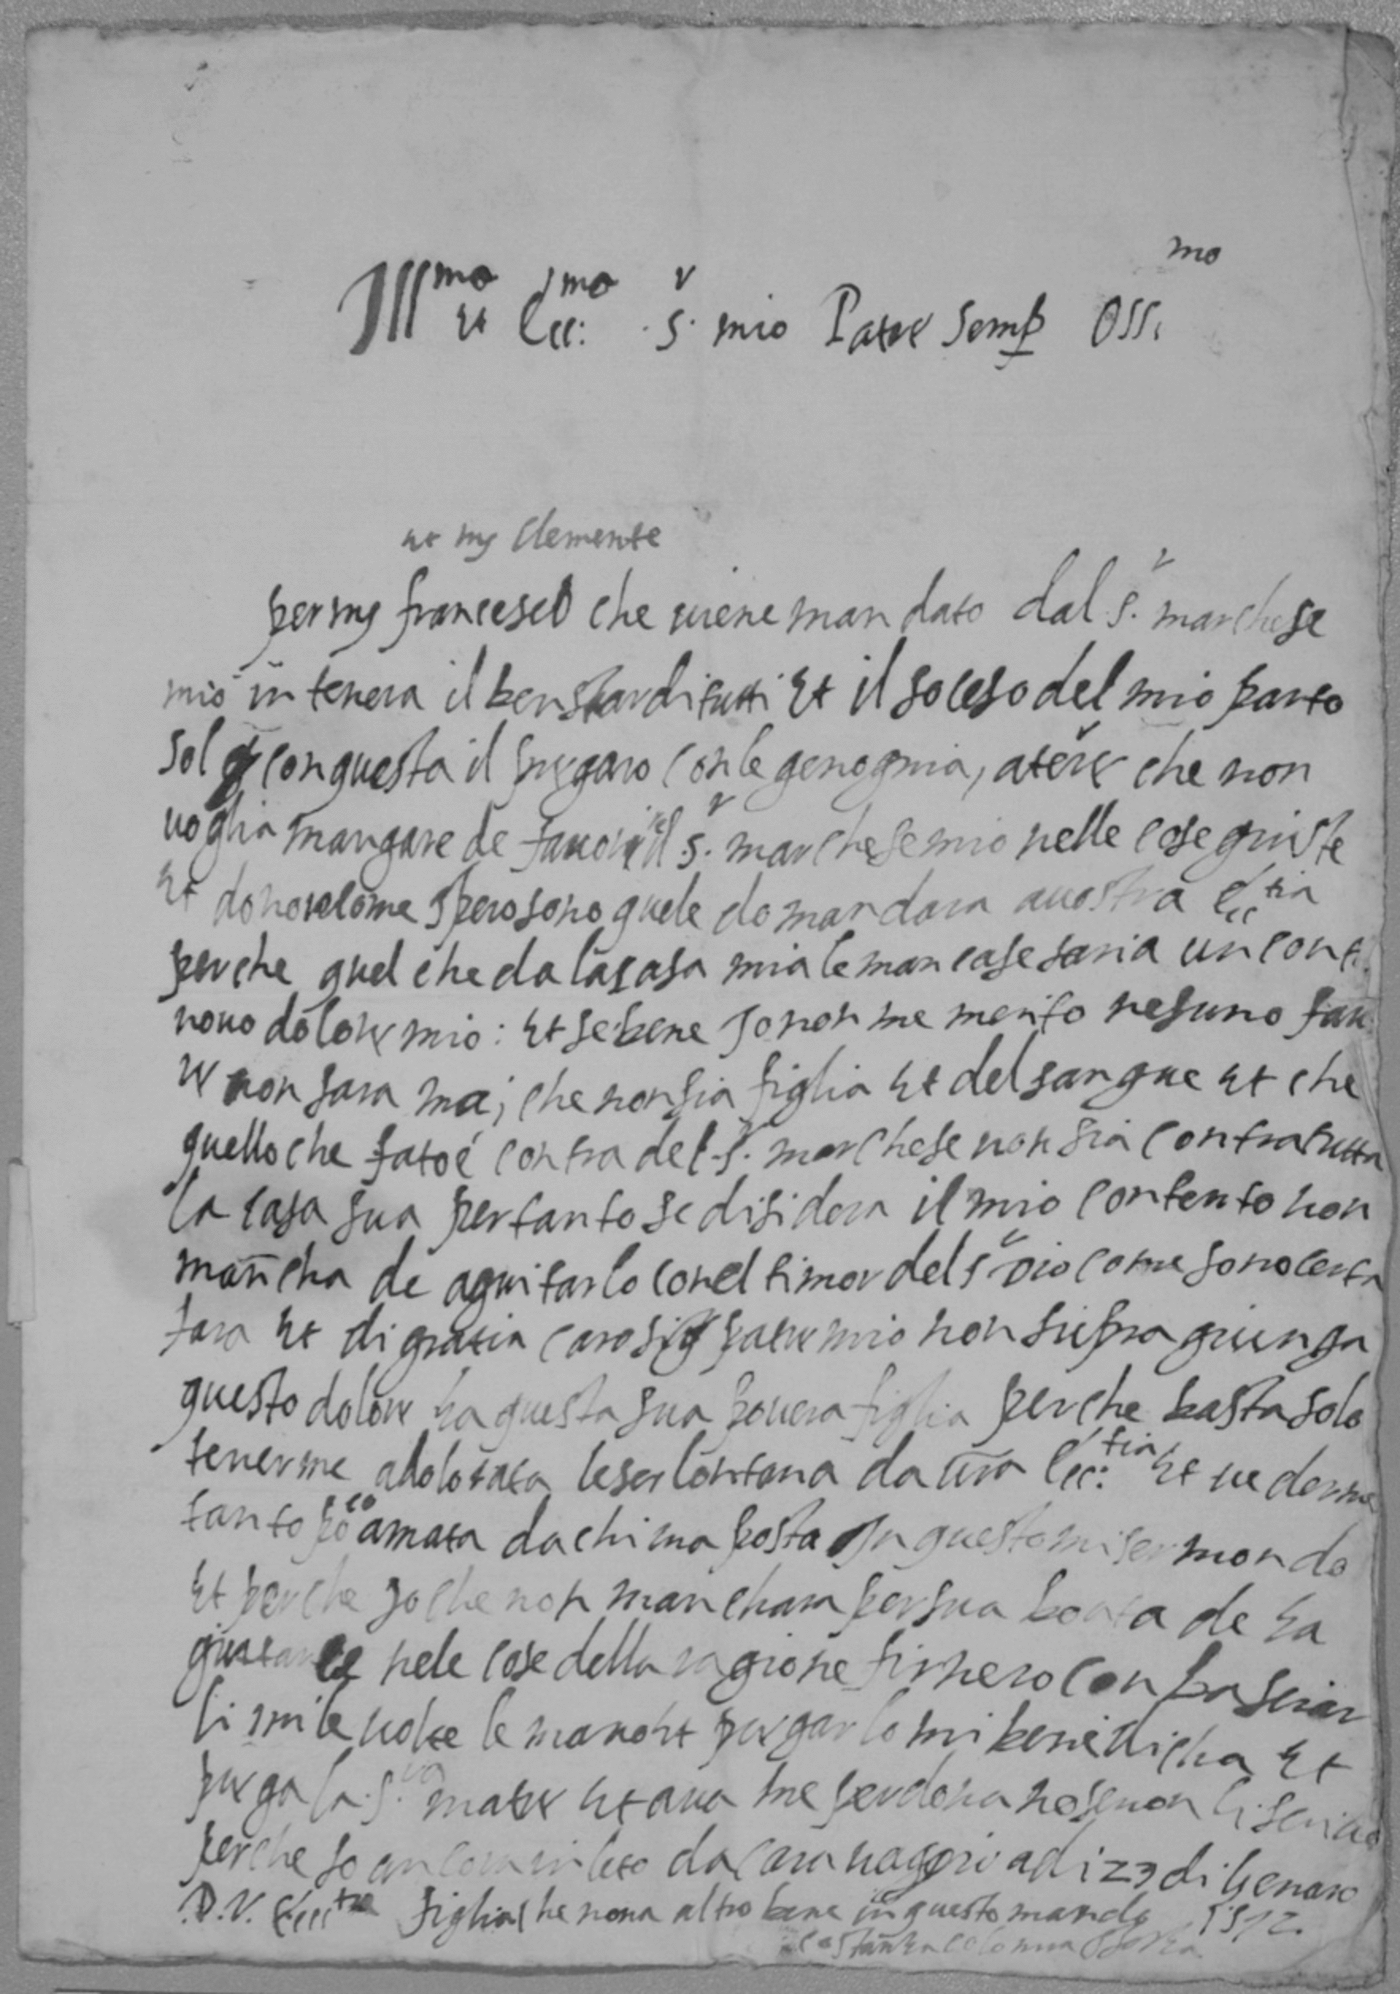 Ill.mo et Ecc.mo S.r mio Patre semp Oss.mo
et ms Clemente
per ms francesco che viene mandato dal S.r marchese
mio intenera il benstar di tutti et il soceso del mio parto
sol con questa il pregaro con le genognia, atere che non
voglia mangare de favorire il S.r marchese mio nelle cose giuste
et donorelome spero sono quele domandara a vostra Ecc.tia
perche quel che da la casa mia le mancase saria un conti
novo dolore mio: et se bene jo non me merito nesuno favo
re non sara mai che non sia figlia et del sangue et che
quello che fato é contra del S.r marchese non sia contra tutta
la casa sua pertanto se disidera il mio contento non
mancha de aguitarlo con el timor del S.r Dio come sono certa
fara et di gratia caro sig patre mio non si sopra giunga
questo dolore ha questa sua povera figlia perche basta solo
tenerme adolorata leser lontana da vra Ecc:tia et vederme
tanto poco amata da chi ma posta in questo miser mondo
et perche so che non manchara per sua bonta de ha
giutarle nele cose della ragione firnero con basciar
li mile volte le mano et pregarlo mi benedicha et
prega la S.ra matre et ava me perdona no se non li scrivo
perche so ancora in leto da caravaggio adi 23 di Genaro
D.V. Ecc.tia figlia che non a altro bene in questo mondo 1572
costanza colonna sforza